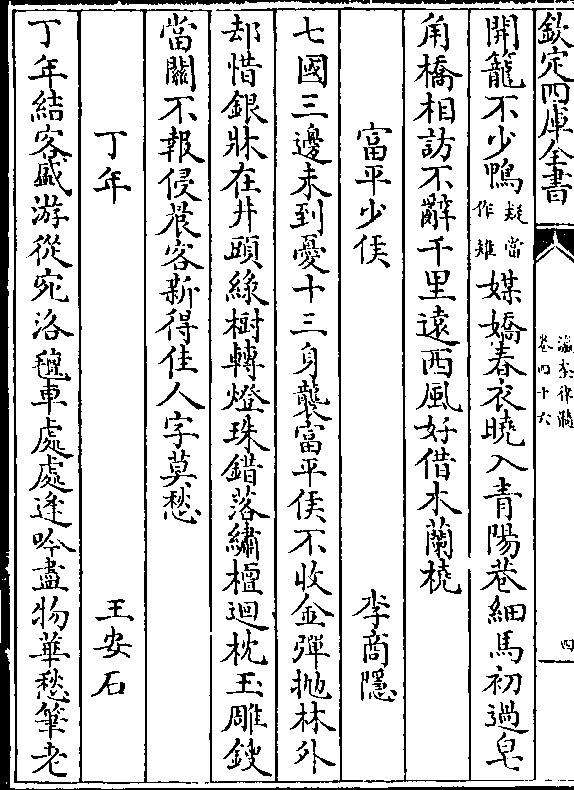 欽定四庫全書
瀛奎律髓
卷四十六
四
開籠不少鴨疑當作雉媒嬌春衣曉入青陽巷細馬初過皂
角橋相訪不辭千里遠西風好借木蘭橈
富平少侯 李商隱
七國三邊未到憂十三身襲富平侯不收金彈抛林外
却惜銀牀在井頭綠樹轉燈珠錯落繡檀迴枕玉雕鎪
當關不報侵晨客新得佳人字莫愁
丁年 王安石
丁年結客盛游從宛洛氊車處處逢吟盡物華愁筆老